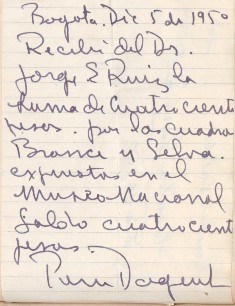 Bogota. Dic 5 de 1950
Recibi del Dr.
Jorge E Ruiz la
suma de cuatrocient
pesos. por los cuadro
Brance y Selva.
expuestos en el
Museo Nacional
Saldo cuatrocient
pesos.